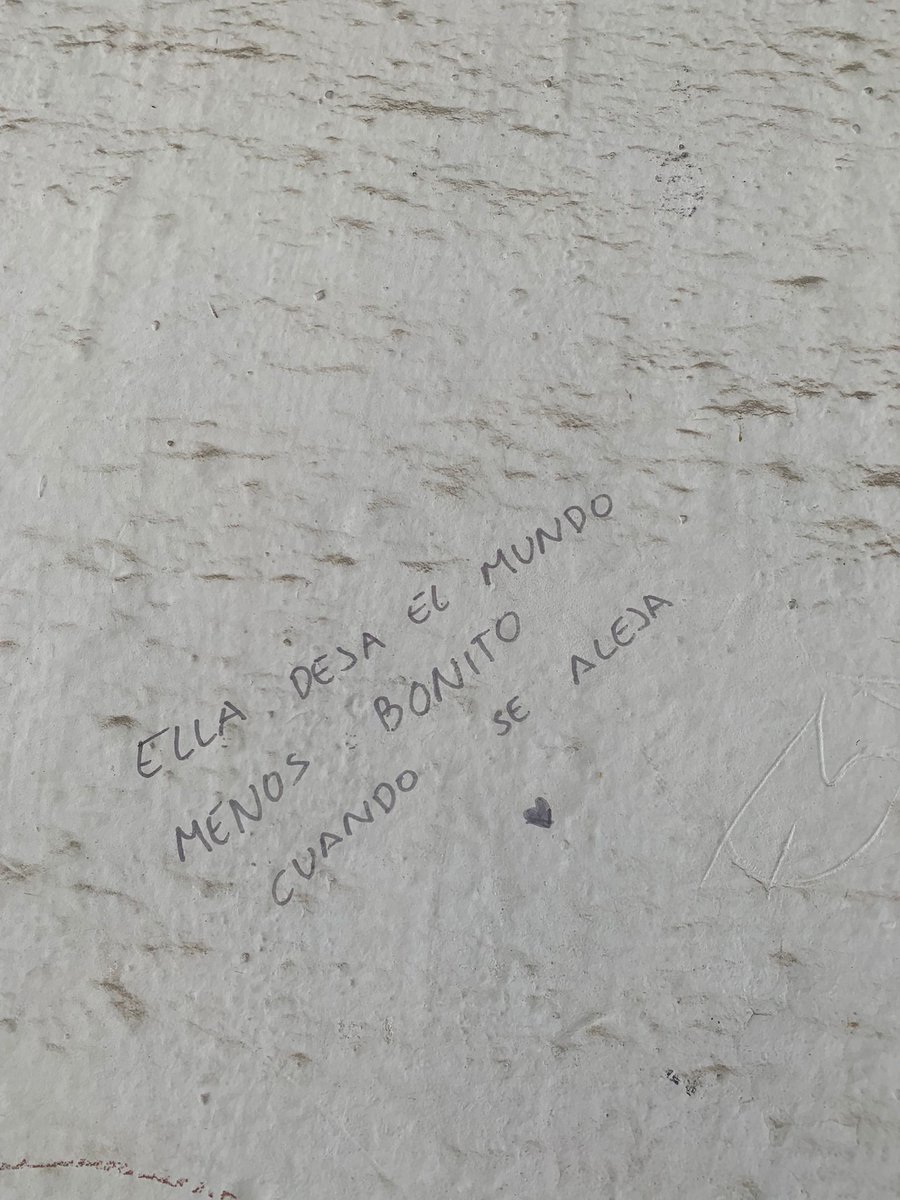 ELLA DEJA EL MUNDO
MENOS BONITO
CUANDO SE ALEJA